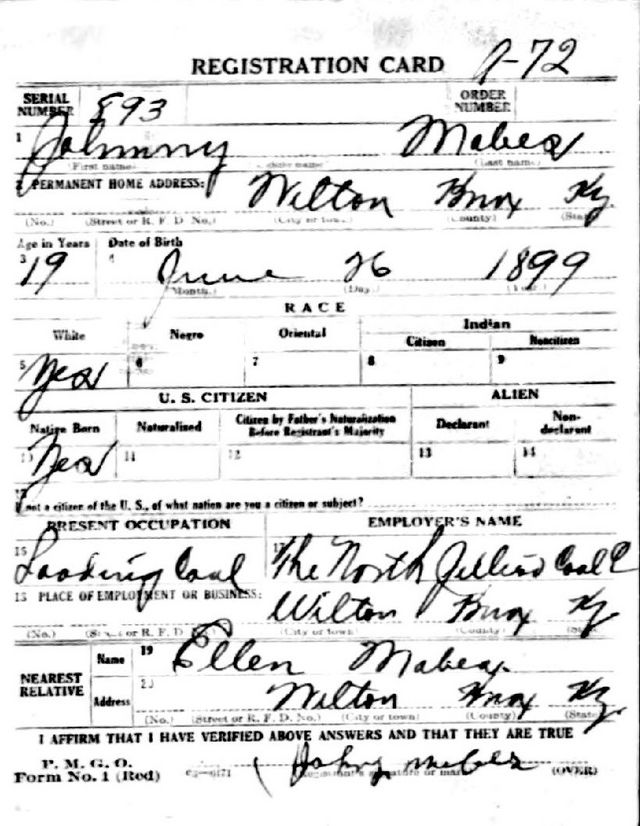 REGISTRATION CARD A-72
SERIAL NUMBER 893 ORDER NUMBER
1 Johnny Mabes
(First name) (Middle name) (Last name)
2 PERMANENT HOME ADDRESS: Wilton Knox Ky
(No.) (Street or R. F. D. No.) (City or town) (County) (State)
Age in Years Date of Birth
3 19 4 June 26 1899
(Month.) (Day.) (Year.)
RACE
White Negro Oriental Indian
Citizen Noncitizen
5 Yes 6 7 8 9
U. S. CITIZEN ALIEN
Native Born Naturalized Citizen by Father's Naturalization Before Registrant's Majority Declarant Non-declarant
10 Yes 11 12 13 14
15
If not a citizen of the U. S., of what nation are you a citizen or subject?
PRESENT OCCUPATION EMPLOYER'S NAME
16 Loading Coal 17 The North Jellico Coal C
18 PLACE OF EMPLOYMENT OR BUSINESS: Wilton Knox Ky
(No.) (Street or R. F. D. No.) (City or town) (County) (State)
NEAREST RELATIVE
Name 19 Ellen Mabes
Address 20 Wilton Knox Ky.
(No.) (Street or R. F. D. No.) (City or town) (County) (State)
I AFFIRM THAT I HAVE VERIFIED ABOVE ANSWERS AND THAT THEY ARE TRUE
P. M. G. O.
Form No. 1 (Red) Johny
(Registrant's signature or mark) (OVER)